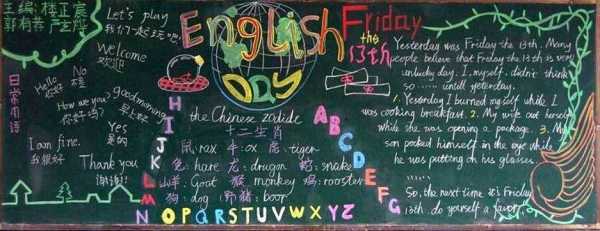 主编:楼正宸
Let's play
我们一起玩吧!
Welcome
欢迎
日常用语
Hello
你好
No
不是
How are you?
你好吗?
good morning
早上好
Yes
是的
I am fine.
我很好
Thank you
谢谢!
English
DAY
the Chinese zodide
十二生肖
鼠:rax 牛:ox 虎:tiger
兔:hare 龙:drugon 蛇:snake
山羊:Goat 猴 monkey 鸡:rooster
狗:dog 野猪:boor
A
B
C
D
E
F
G
H
I
J
K
L
M
N O P Q R S T U V W X Y Z
Friday
the
13th
Yesterday was Friday the 13th. Many
people believe that Friday the 13th is very
unlucky day. I, myself, didn't think
so ...... until yesterday.
1. Yesterday I burned myself while I
was cooking breakfast. 2. My wife cut herself
while she was opening a package. 3. My
son pocked himself in the eye while
he was putting on his glasses
......
So, the next time it's Friday
13th. do yourself a favor,